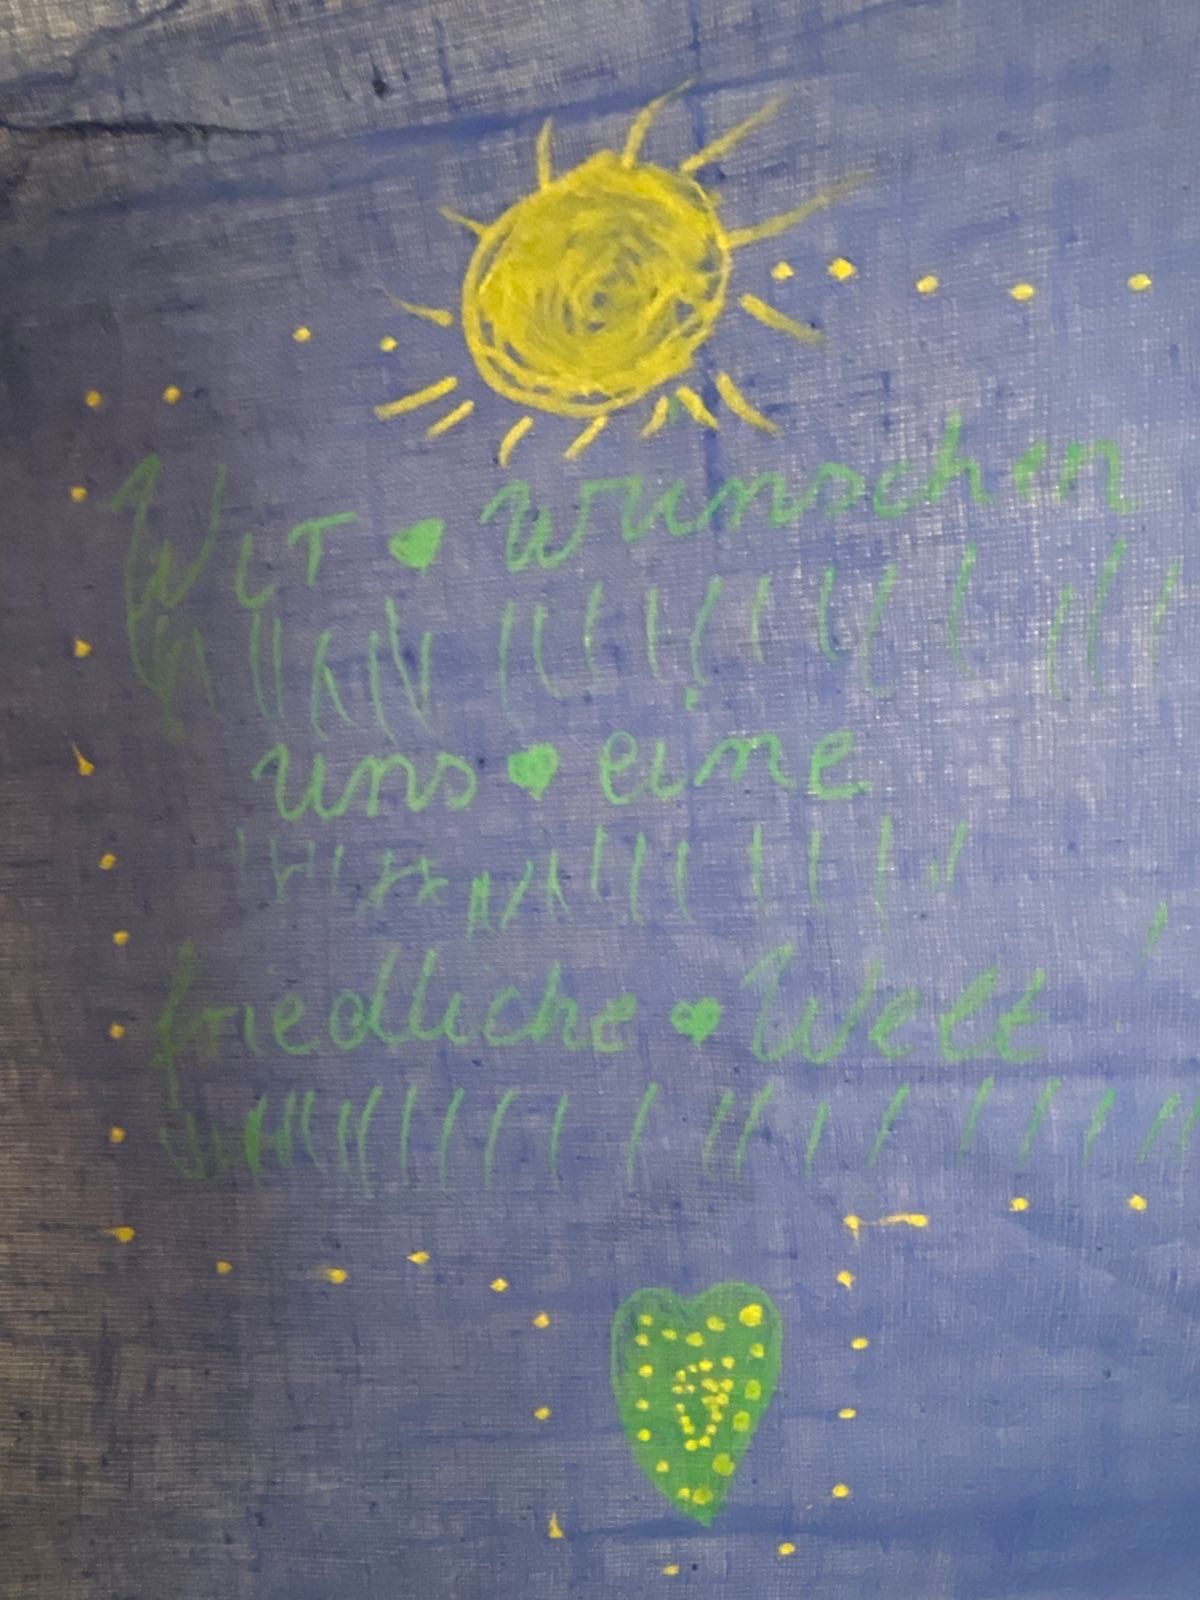 Wir ♥ wünschen
uns ♥ eine
friedliche ♥ Welt